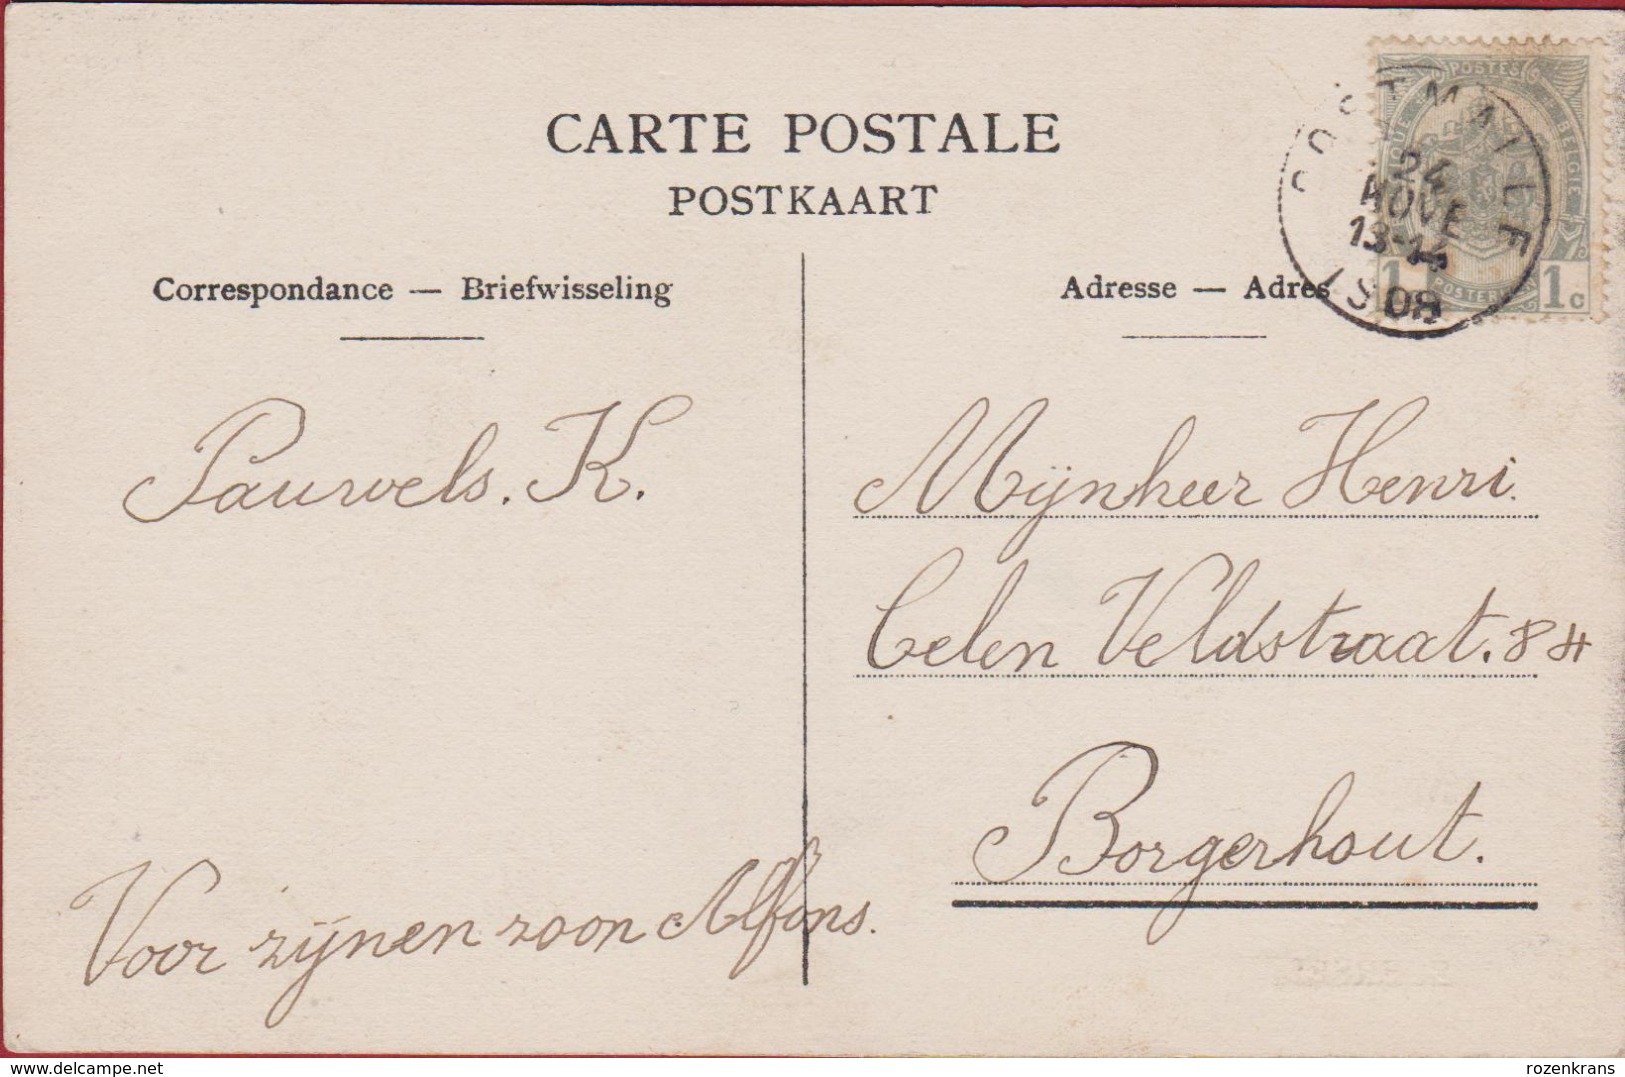 CARTE POSTALE
POSTKAART
Correspondance — Briefwisseling
Adresse — Adres
POSTES
BELGIE
24
13-14
08
1
1c
Pauwels. K.
Mijnheer Henri.
Celen Veldstraat. 84
Borgerhout.
Voor zijnen zoon Alfons.
delcampe.net
rozenkrans